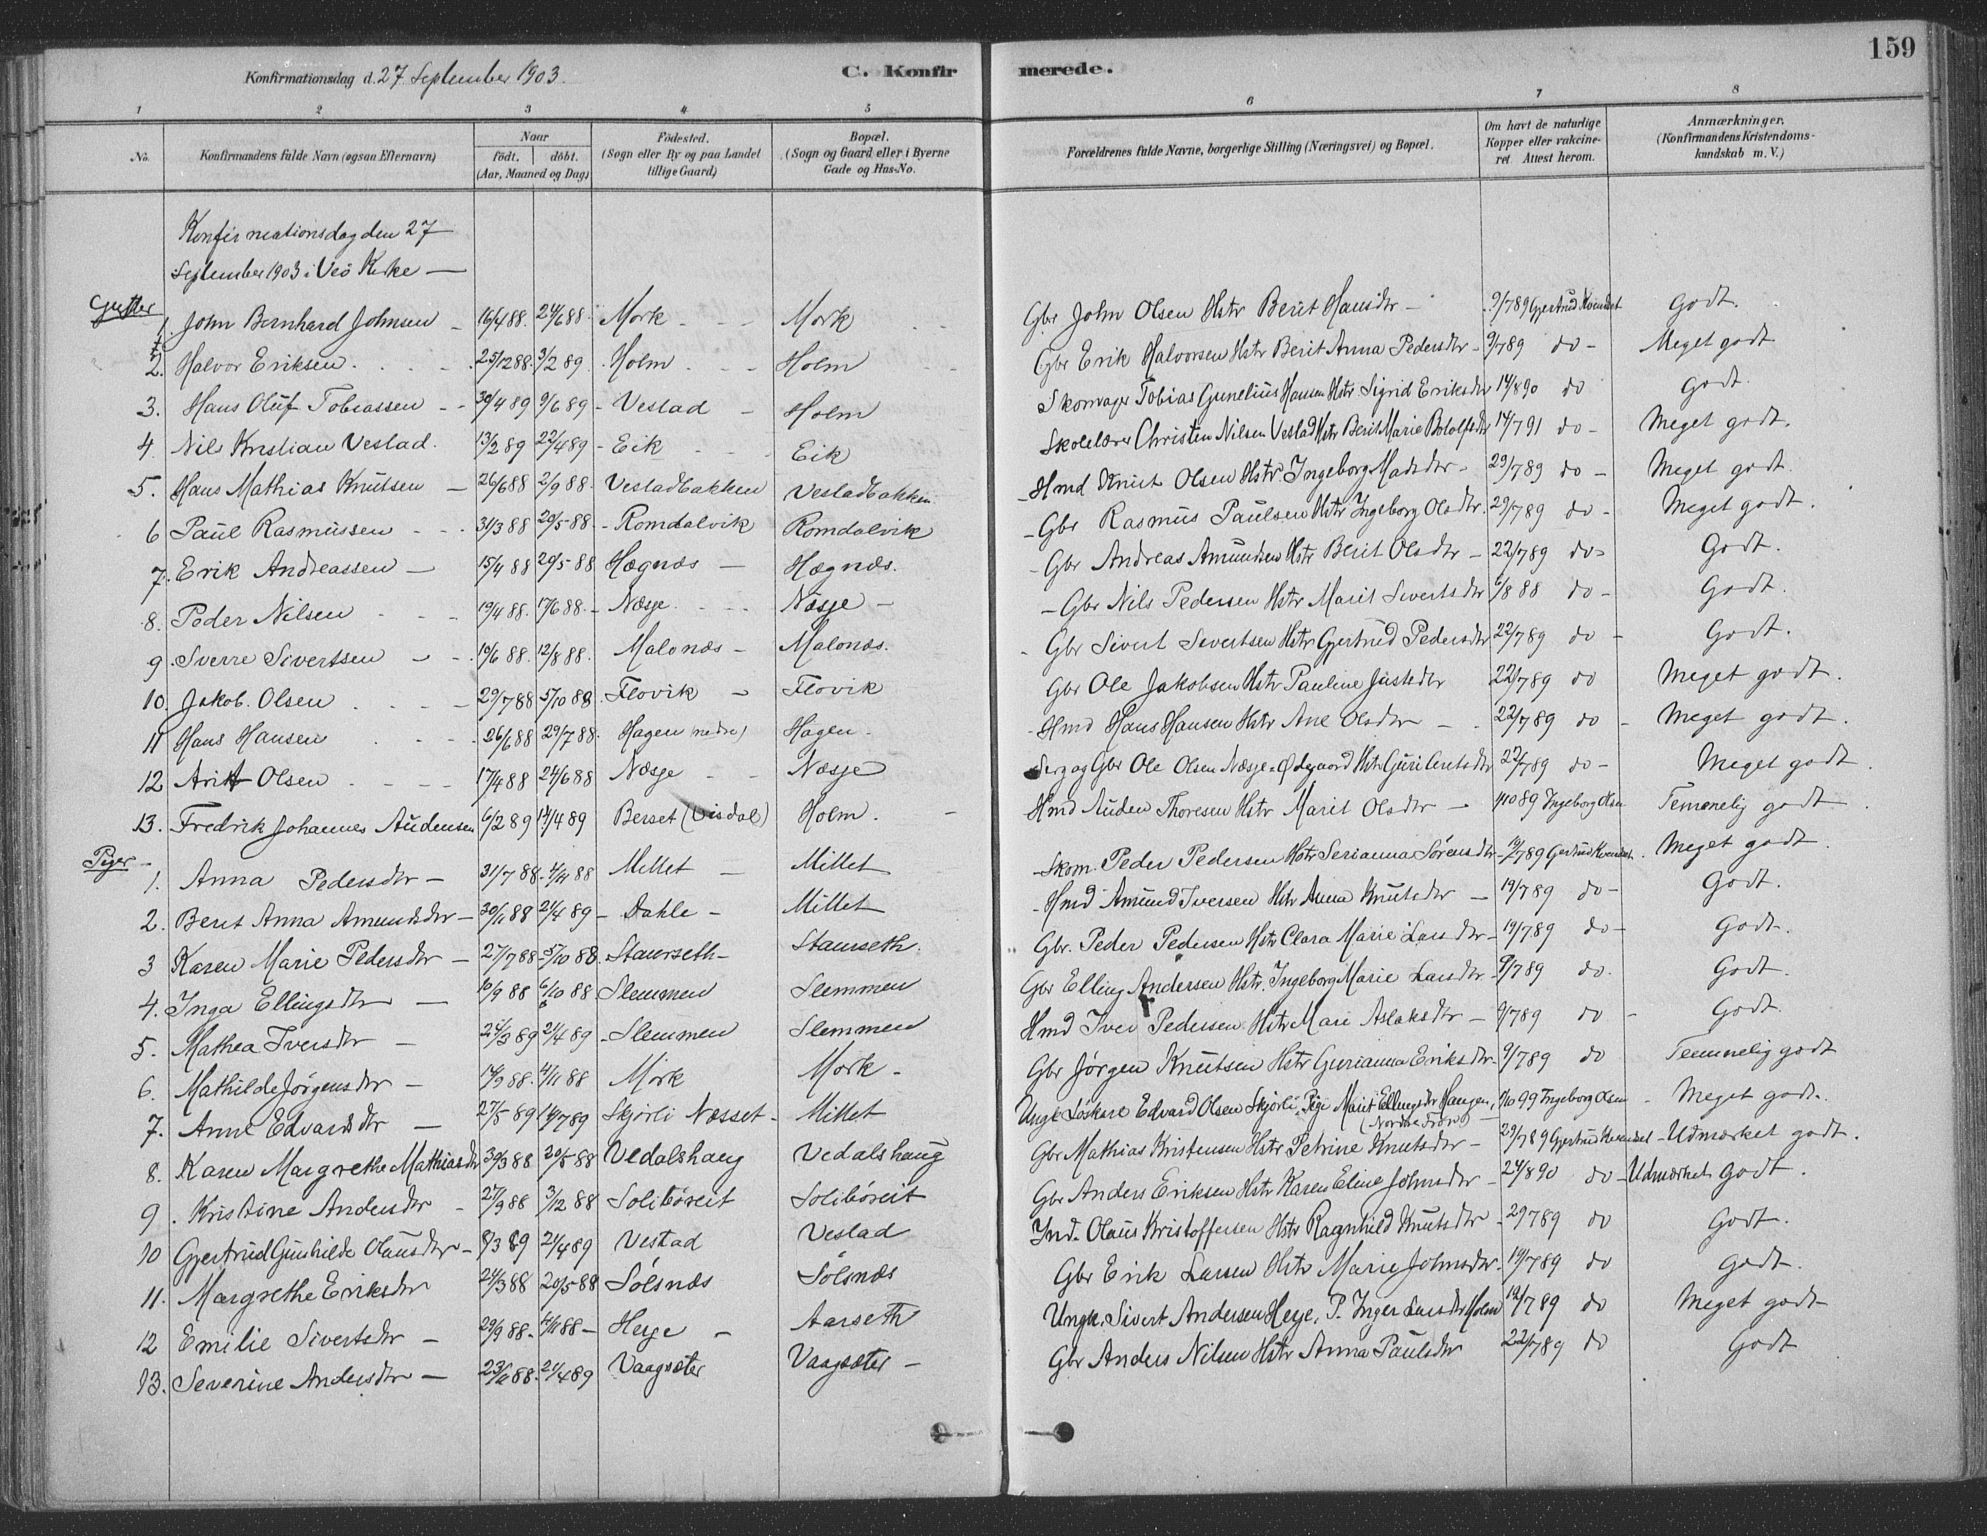 159
Konfirmationsdag d. 27. September 1903. C. Konfirmerede.
1 2 3 4 5 6 7 8
No. Konfirmandens fulde Navn (ogsaa Efternavn) Naar født, døbt. (Aar, Maaned og Dag) Fødested. (Sogn eller By og paa Landet tillige Gaard) Bopæl. (Sogn og Gaard eller i Byerne Gade og Hus-No. Forældrenes fulde Navne, borgerlige Stilling (Næringsvei) og Bopæl. Om havt de naturlige Kopper eller vakcineret. Attest herom. Anmærkninger. (Konfirmandens Kristendomskundskab m. V.)
Konfirmationsdag den 27
September 1903 i Veö Kirke —
Gutter
1. John Bernhard Johnsen 16/4 88. 24/6 88. Mork Mork Gbr John Olsen Hstr Berit Hansdtr 9/7 89 Gjertrud Kvendset Godt.
2. Halvor Eriksen 25/12 88. 3/2 89. Holm Holm Gbr Erik Halvorsen Hstr Berit Anna Pedersdtr 9/7 89 do Meget godt
3. Hans Oluf Tobiassen 30/4 89 9/6 89 Vestad Holm Skomager Tobias Gunelius Hansen Hstr Sigrid Eriksdtr 14/8 90 do Godt.
4 Nils Kristian Vestad. 13/2 89 22/4 89 Eik Eik Skolelærer Christen Nilsen Vestad Hstr Berit Marie Botolfsdtr 14/7 91 do Meget godt.
5. Hans Mathias Knutsen 26/6 88 2/9 88. Vestadbakken Vestadbakken Hmd Knut Olsen Hstr Ingeborg Madsdtr 29/7 89 do Meget godt.
6 Paul Rasmussen 31/3 88 20/5 88 Romdalvik Romdalvik Gbr Rasmus Paulsen Hstr Ingeborg Olsdtr. 29/7 89 do Meget godt.
7. Erik Andreassen 15/4 88 20/5 88 Hægnæs Hægnæs. Gbr Andreas Amundsen Hstr Berit Olsdtr 22/7 89 do Godt.
8. Peder Nilsen 19/4 88. 17/6 88 Næsje Næsje Gbr Nils Pedersen Hstr Marit Sivertsdtr 6/8 88 do Godt.
9. Sverre Sivertsen 10/6 88. 12/8 88. Malonæs Malonæs. Gbr Sivert Sivertsen Hstr Gjertrud Pedersdtr 22/7 89 do Godt.
10. Jakob. Olsen 29/7 88 5/10 88 Flovik Flovik Gbr Ole Jakobsen Hstr Pauline Justdtr 22/7 89 do Meget godt.
11 Hans Hansen 26/6 88 29/7 88. Hagen (nedre) Hagen. Hmd Hans Hansen Hstr Ane Olsdtr 22/7 89 do Meget godt.
12 Arit Olsen 17/4 88 24/6 88 Næsje Næsje Serg og Gbr Ole Olsen Næsje Ødegaard Hstr Guri 22/7 89 do Meget godt.
13. Fredrik Johannes Audensen 6/2 89 14/4 89 Berset (Visdal) Holm. Hmd Auden Thoresen Hstr Marit Olsdtr 4/10 89 Ingeborg Olsen Temmelig godt.
Piger
1. Anna Pedersdtr 31/7 88. 4/11 88 Millet Millet Skom. Peder Pedersen Hstr Serianna Sørensdtr 19/7 89 Gjertrud Kvendset. Meget godt.
2. Berit Anna Amundsdtr 30/11 88 21/4 89 Dahle Millet Hmd Amund Iversen Hstr Anna Knutsdtr 19/7 89 do Godt.
3 Karen Marie Pedersdtr 27/7 88 5/10 88. Staurseth Staurseth. Gbr. Peder Pedersen Hstr Clara Marie Larsdtr 19/7 89 do Godt.
4. Inga Ellingsdtr 10/9 88 6/10 88 Slemmen Slemmen Gbr Elling Andersen Hstr. Ingeborg Marie Larsdtr 9/7 89 do Godt.
5. Mathea Iversdtr 24/3 89 21/4 89 Slemmen Slemmen Hmd Iver Pedersen Hstr Mari Aslaksdtr 9/7 89 do Godt.
6. Mathilde Jörgensdtr 14/9 88. 4/11 88 Mork Mork Gbr Jørgen Knutsen Hstr Gurianna Eriksdtr 9/7 89 do Temmelig godt
7. Anne Edvardsdtr 27/5 89 14/7 89 Skjørli Næsset Millet Ungk Løskare Edvard Olsen Skjørli, Pige Marit Ellingsdtr Haugen, (Nordre Fron) 1/10 99 Ingeborg Olsen Meget godt.
8. Karen Margrethe Mathiasdtr 30/3 88 20/5 88 Vedalshaug Vedalshaug Gbr Mathias Kristensen Hstr Petrine Knutsdtr 29/7 89 Gjertrud Kvendset Udmærket godt.
9. Kristine Andersdtr 27/9 88 3/12 88 Solibøreit Solibøreit Gbr Anders Eriksen Hstr Karen Eline Johnsdtr 24/8 90 do Udmærket godt.
10 Gjertrud Gunhilde Olausdtr 8/3 89 21/4 89 Vestad Vestad Ind. Olaus Kristoffersen Hstr Ragnhild Knutsdtr 29/7 89 do Godt.
11. Margrethe Eriksdtr 24/3 88 20/5 88 Sølsnæs Sølsnæs Gbr Erik Larsen Hstr Marie Johnsdtr. 19/7 89 do Godt.
12 Emilie Sivertsdtr 29/9 88. 4/11 88 Heye Aarseth Ungk. Sivert Andersen Heye, P. Inger Larsdtr Holm 12/7 89 do Meget godt
13. Severine Andersdtr 23/11 88. 21/4 89 Vaagsæter Vaagsæter Gbr Anders Nilsen Hstr Anna Paulsdtr 22/7 89 do Godt